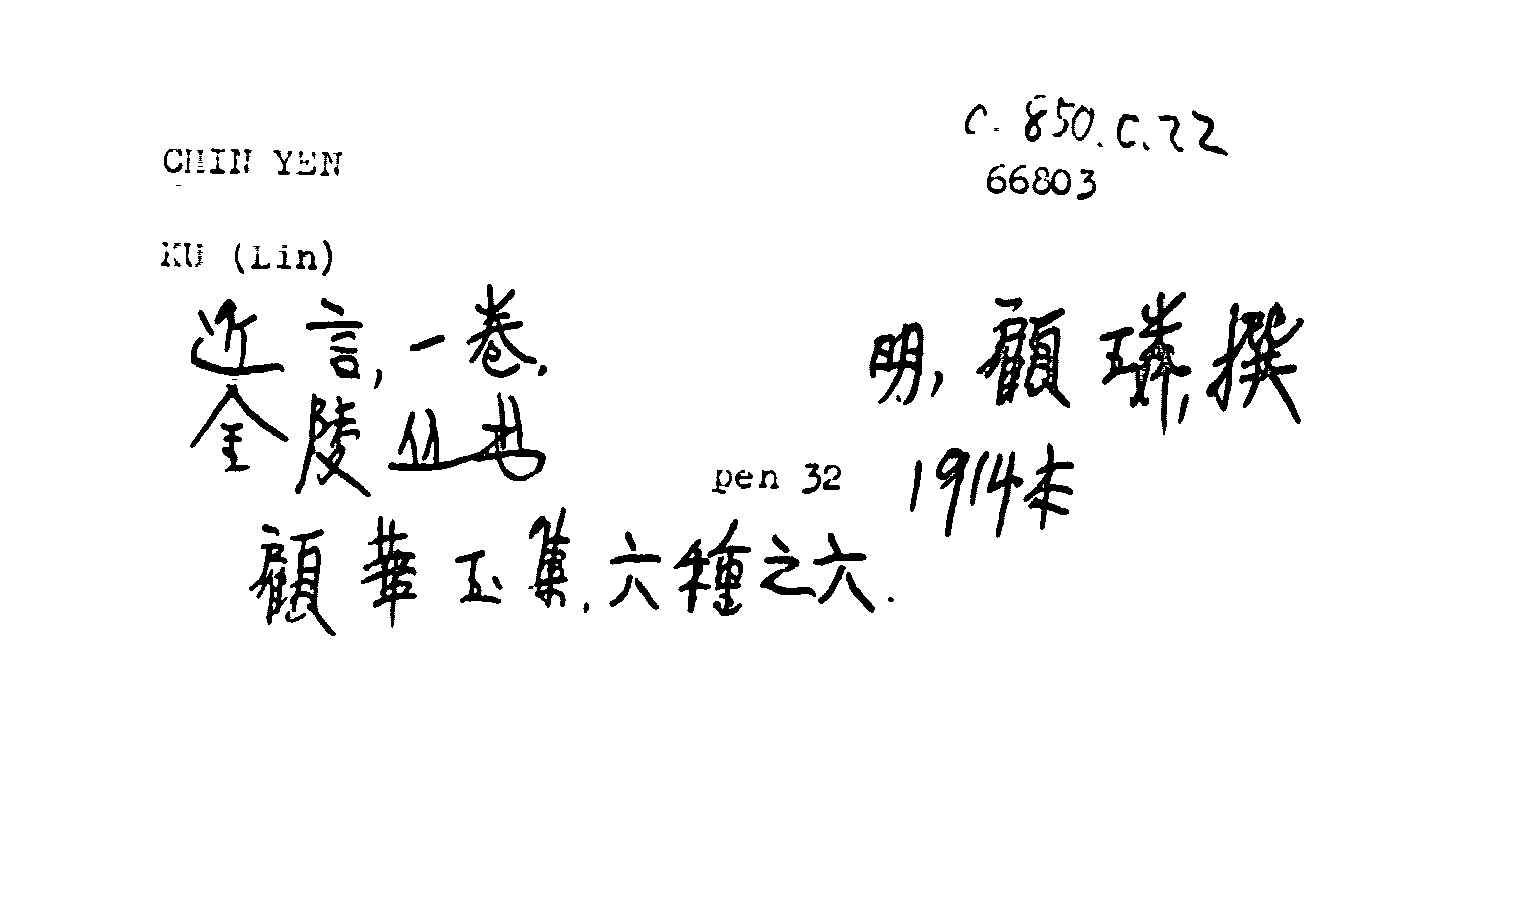 C. 850.C.22
CHIN YEN
66803
KU (Lin)
近言,一卷. 明,顧璘,撰
金陵丛书 pen 32 1914本
顧華玉集.六種之六.